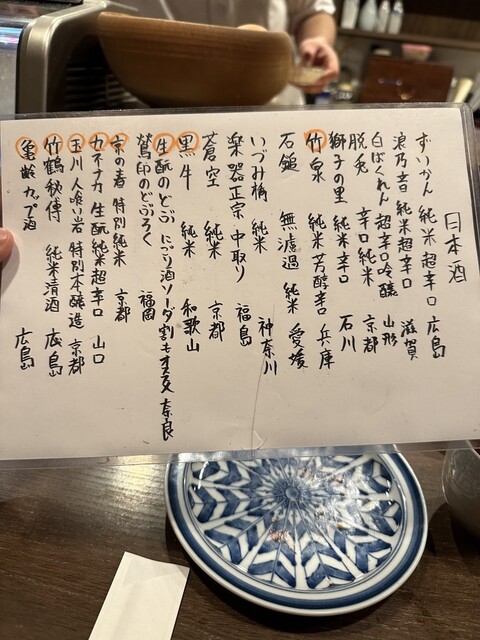 日本酒
ずいかん 純米 超辛口 広島
浪乃音 純米超辛口 滋賀
白ばくれん 超辛口吟醸 山形
脱兎 辛口純米 京都
獅子の里 純米辛口 石川
竹泉 純米 芳醇辛口 兵庫
石鎚 無濾過 純米 愛媛
いづみ橋 純米 神奈川
楽器正宗 中取り 福島
蒼空 純米 京都
黒牛 純米 和歌山
生酛のどぶ にごり酒ソーダ割も 奈良
鷲印のどぶろく 福岡
京の春 特別純米 京都
カネナカ 生酛純米超辛口 山口
玉川 人喰い岩 特別本醸造 京都
竹鶴 秘傳 純米清酒 広島
亀齢 カップ酒 広島